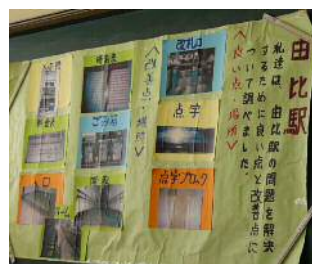 由比駅
私達は、由比駅の問題を解決
するために良い点と改善点に
ついて調べました。
＜良い点・場所＞
改札口
点字
点字ブロック
＜改善点・場所＞
時刻表
ごみ箱
階段
入口
ホーム